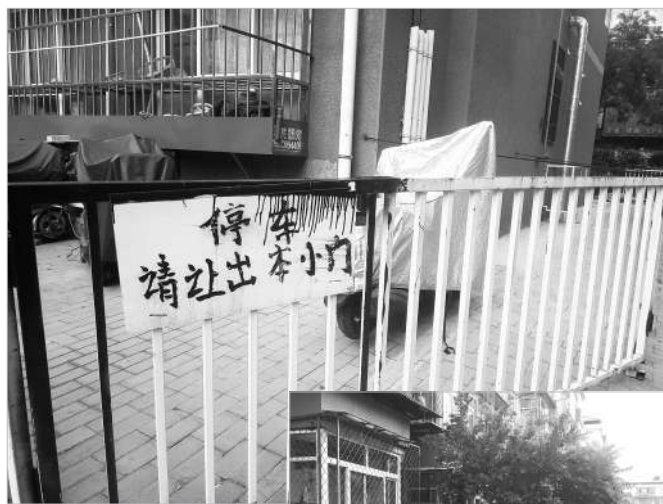 停车
请让出本小门